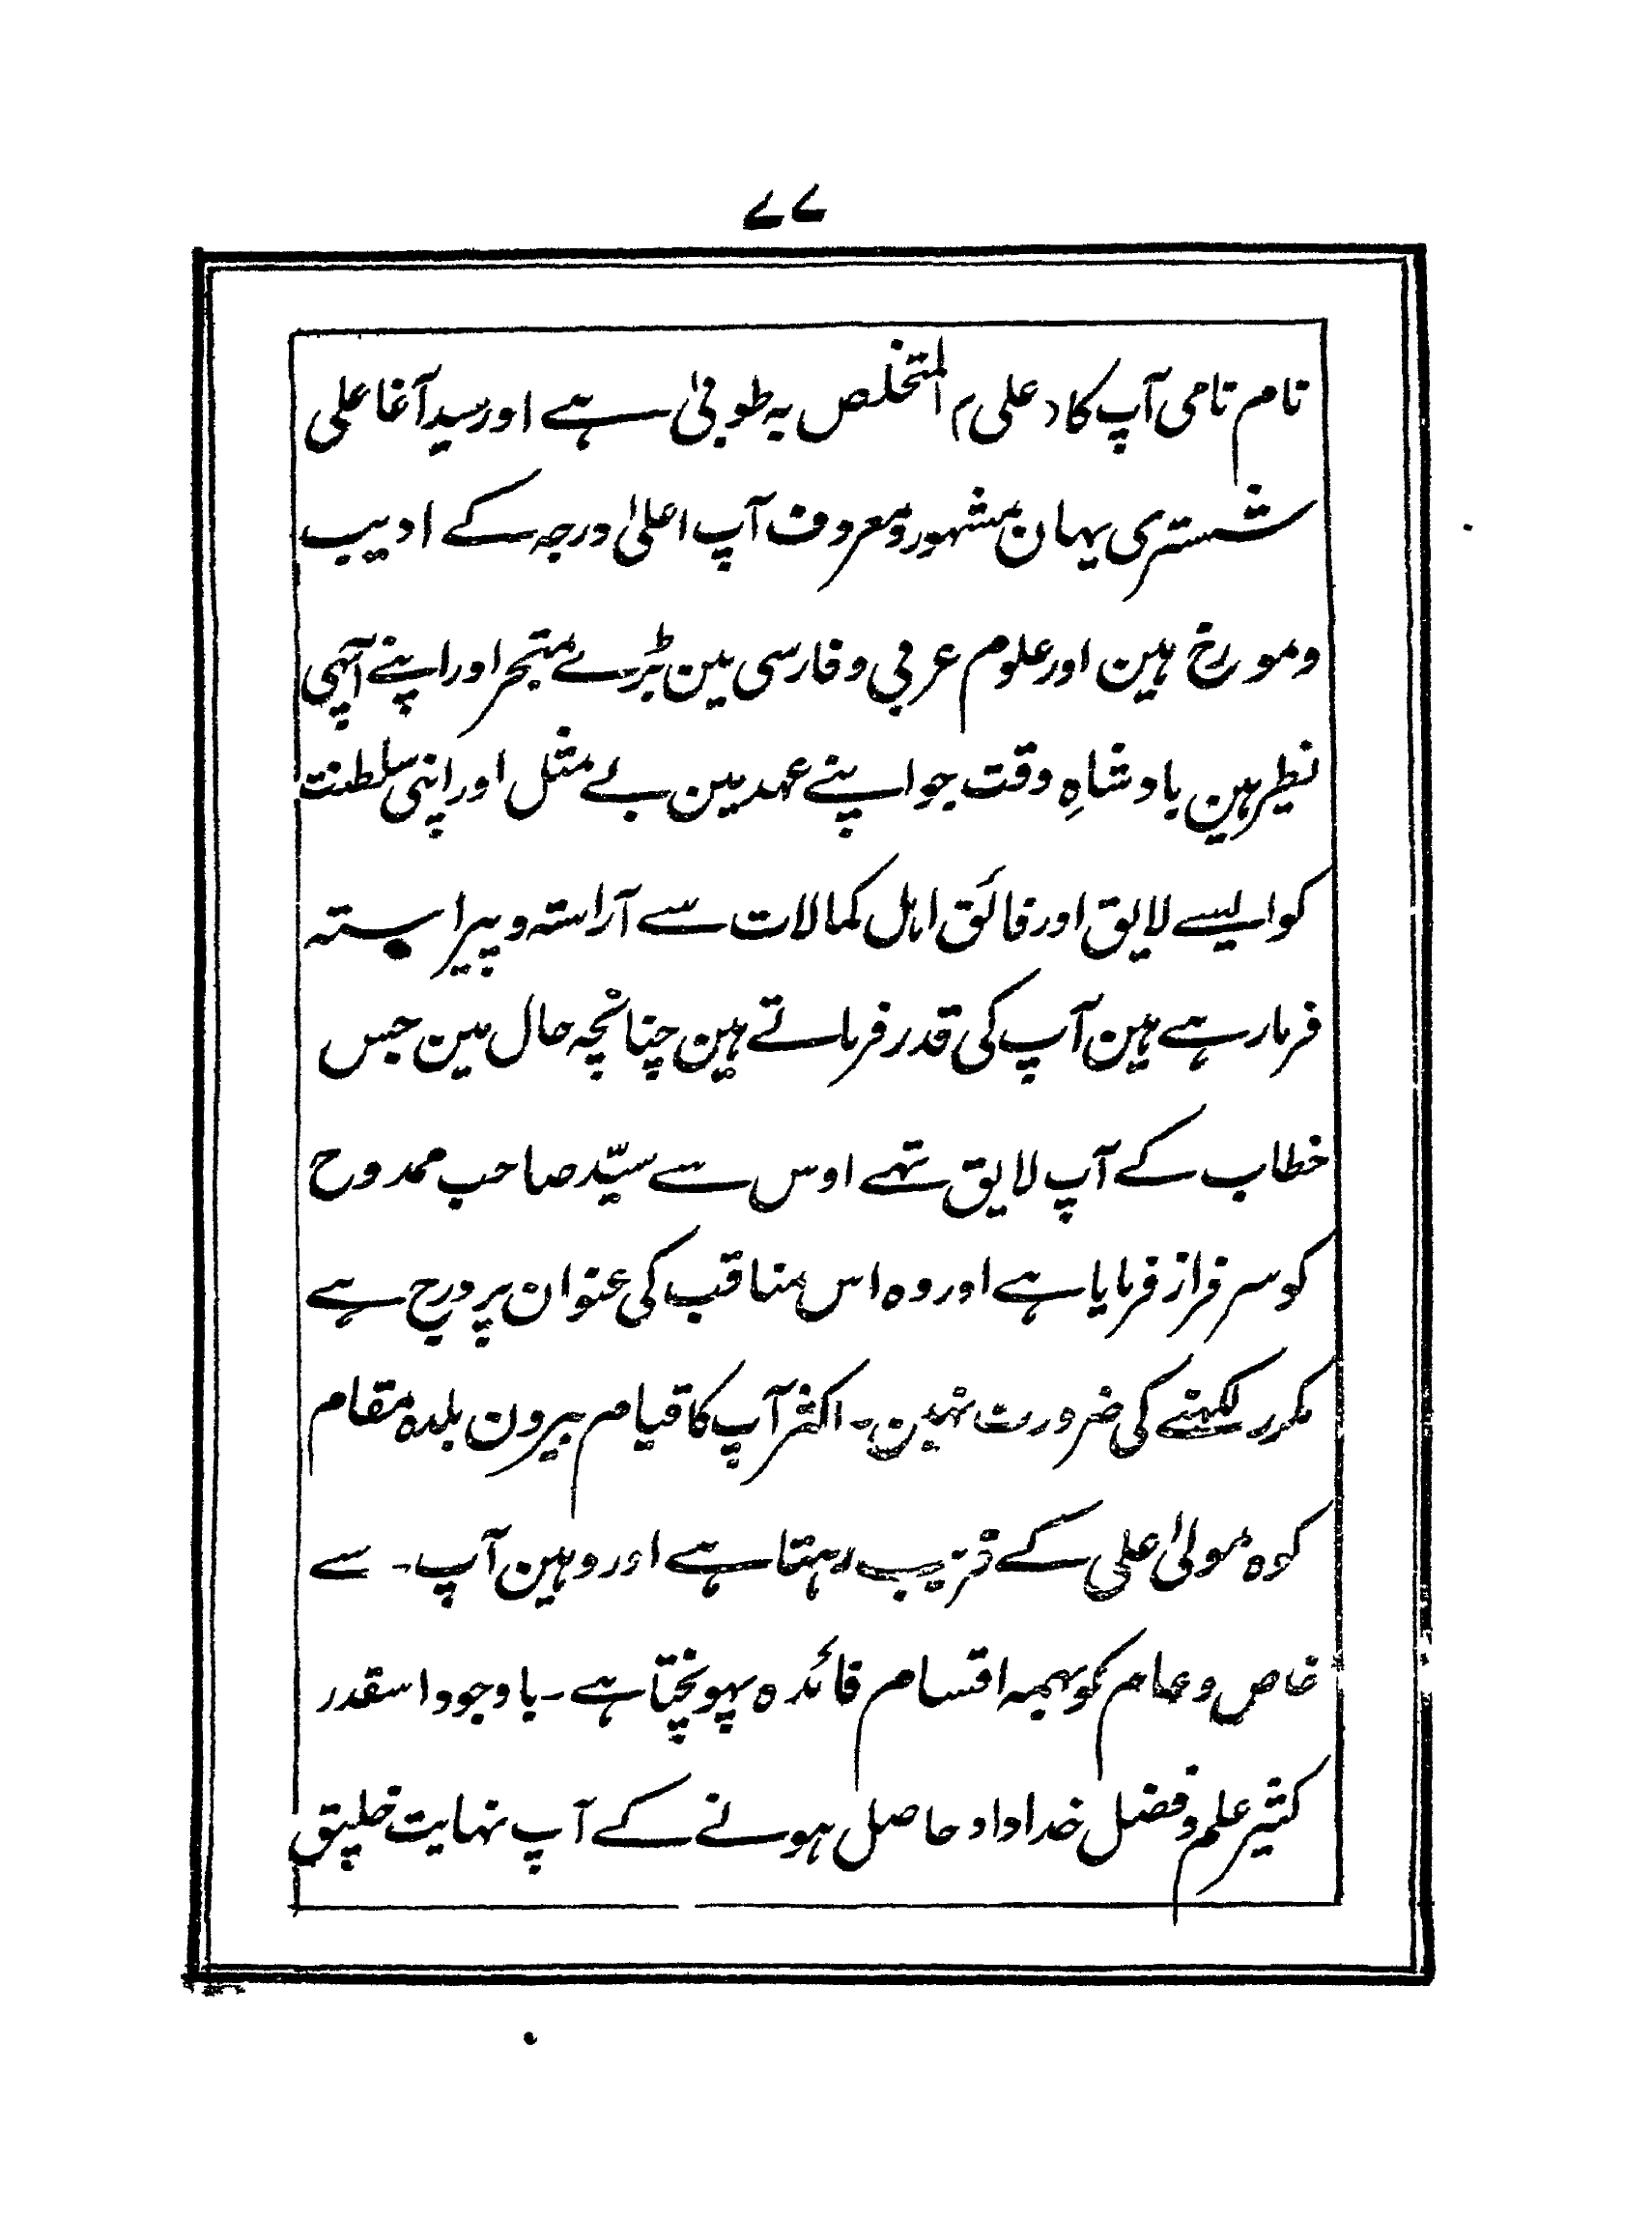 ۷۷
نام نامی آپ کا (علی) المتخلص بہ طوبیٰ ہے اور سید آغا علی
شستری یہان مشہور و معروف آپ اعلیٰ درجہ کے ادیب
و مورخ ہین اور علوم عربی و فارسی مین بڑے متبحر اور اپنے آپہی
نظیر ہین بادشاہِ وقت جو اپنے عہد مین بے مثل اور اپنی سلطنت
کو ایسے لایق اور فائق اہل کمالات سے آراستہ و پیراستہ
فرمارہے ہین آپ کی قدر فرماتے ہین چنانچہ حال مین جس
خطاب کے آپ لایق تہے اوس سے سیّد صاحب ممدوح
کو سرفراز فرمایا ہے اور وہ اس مناقب کی عنوان پر درج ہے
مکرر لکہنے کی ضرورت نہین۔ اکثر آپ کا قیام بیرون بلدہ مقام
کوہ مولیٰ علی کے قریب رہتا ہے اور وہین آپ۔ سے
خاص و عام کو بہمہ اقسام فائدہ پہونچتا ہے۔ باوجود اسقدر
کثیر علم و فضل خداداد حاصل ہونے کے آپ نہایت خلیق